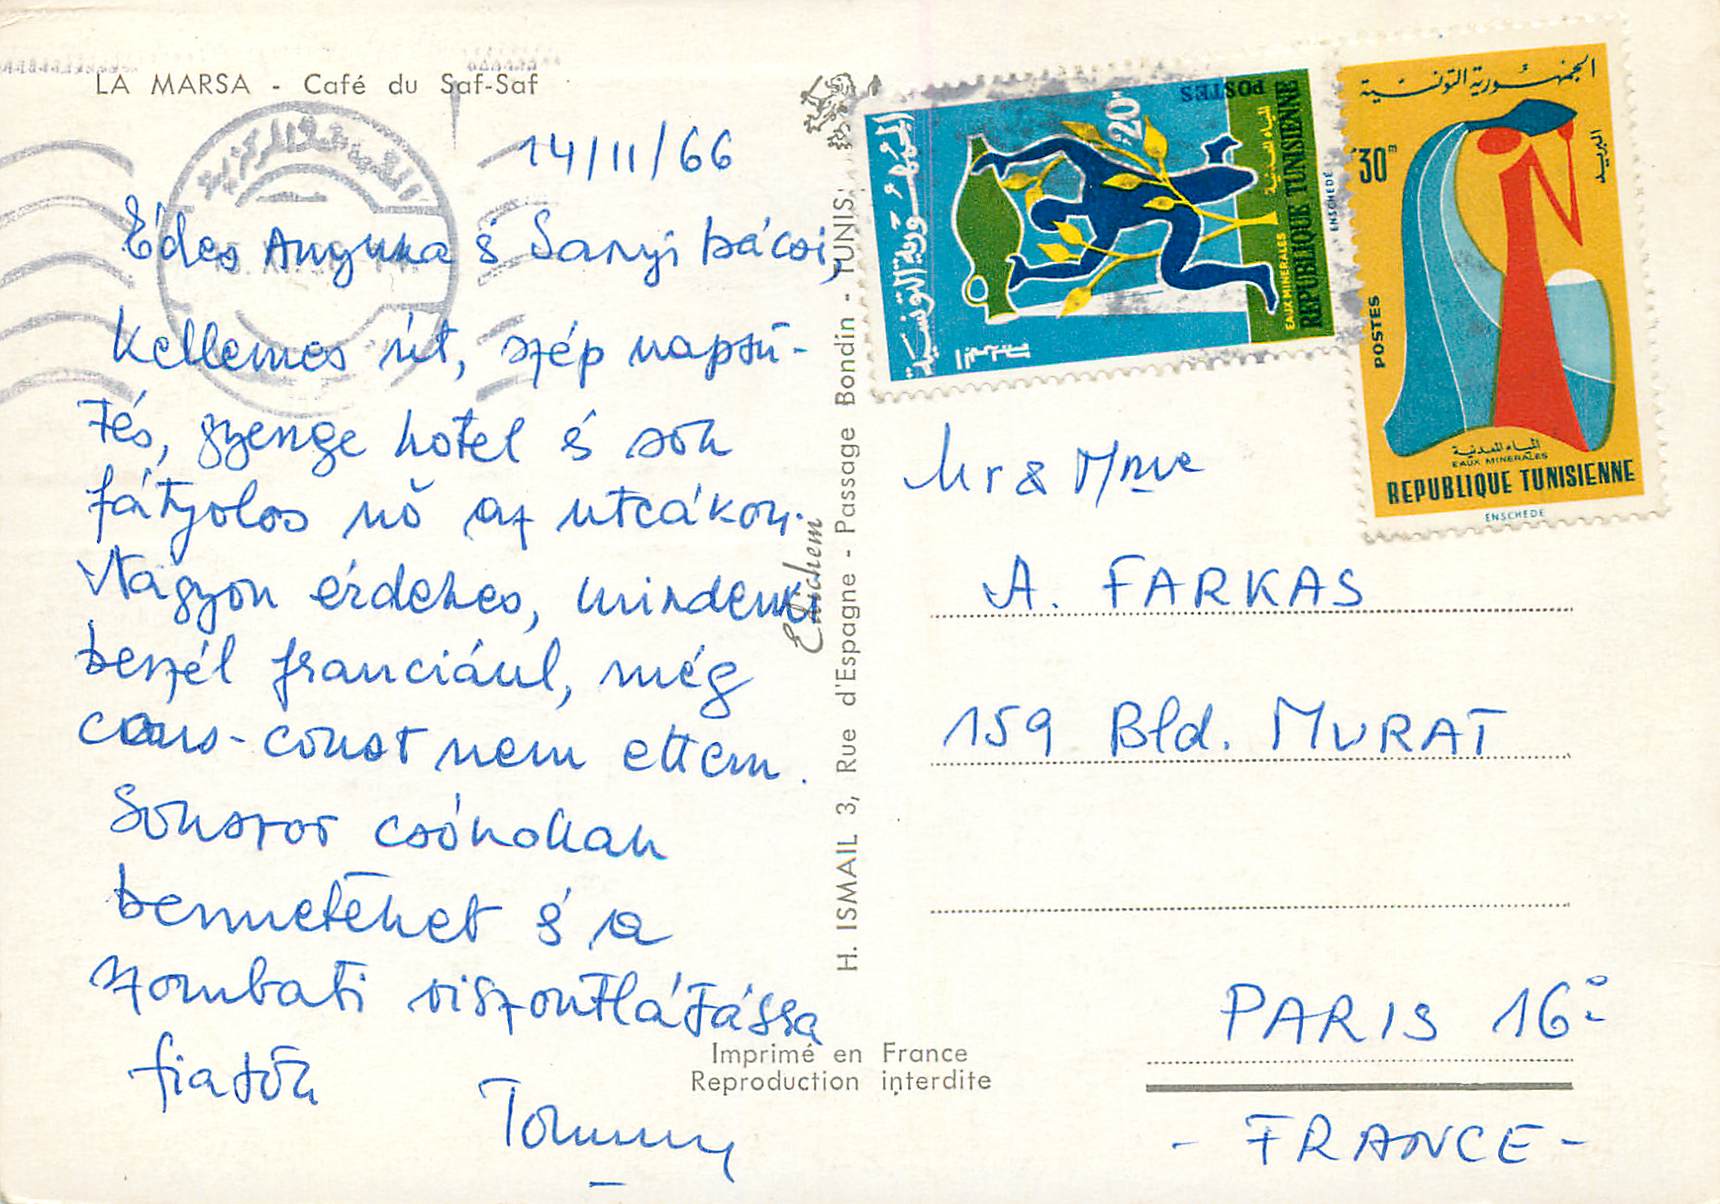 LA MARSA - Café du Saf-Saf
14/11/66
Édes Anyuka és Sanyi bácsi,
Kellemes út, szép napsü-
tés, gyenge hotel és sok
fátyolos nő az utcákon.
Nagyon érdekes, mindenki
beszél franciául, még
cous-coust nem ettem.
Sokszor csókollak
benneteket és a
szombati viszontlátásra
fiatok
Tommy
H. ISMAIL 3, Rue d'Espagne - Passage Bondin - TUNIS.
Imprimé en France
Reproduction interdite
الجمهورية التونسية
20m
POSTES
المياه المعدنية
EAUX MINERALES
REPUBLIQUE TUNISIENNE
البريد
ENSCHEDÉ
الجمهورية التونسية
البريد
30m
POSTES
المياه المعدنية
EAUX MINERALES
REPUBLIQUE TUNISIENNE
ENSCHEDÉ
Mr & Mme
A. FARKAS
159 Bld. MURAT
PARIS 16e
- FRANCE -